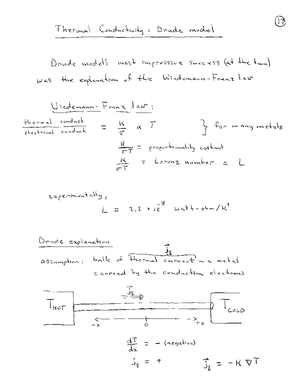 17
Thermal Conductivity: Drude model
Drude model's most impressive success (at the time)
was the explanation of the Wiedemann-Franz law
Wiedemann-Franz law:
thermal conduct / electrical conduct = K/σ ∝ T } for many metals
K/σT = proportionality constant
K/σT = Lorenz number = L
experimentally,
L = 2.2 × 10⁻⁸ watt-ohm/K²
Drude explanation
assumption: bulk of thermal current j⃗q in a metal
carried by the conduction electrons
j⃗q
T HOT T COLD
-x 0 +x
dT/dx = - (negative)
jq = + j⃗q = -K ∇T